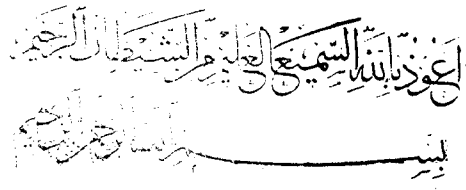 اَعُوْذُ بِاللّٰهِ السَّمِيْعِ الْعَلِيْمِ مِنَ الشَّيْطَانِ الرَّجِيْمِ
بِسْمِ اللّٰهِ الرَّحْمٰنِ الرَّحِيْمِ